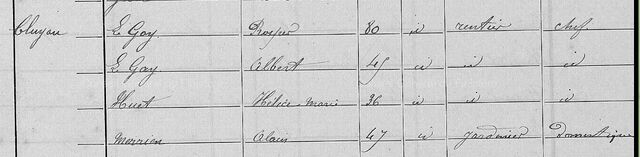 Cluyou Le Gay Prosper 80 id rentier chef
Le Gay Albert 45 id id id
Huet Marie 26 id id id
Morrien Alain 47 id jardinier domestique